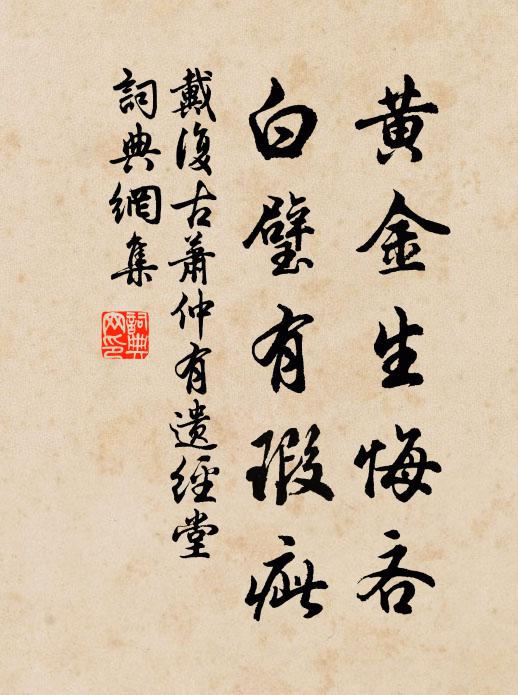 黃金生悔吝
白璧有瑕疵
戴復古蕭仲有遺經堂
詞典網集
詞典
网印